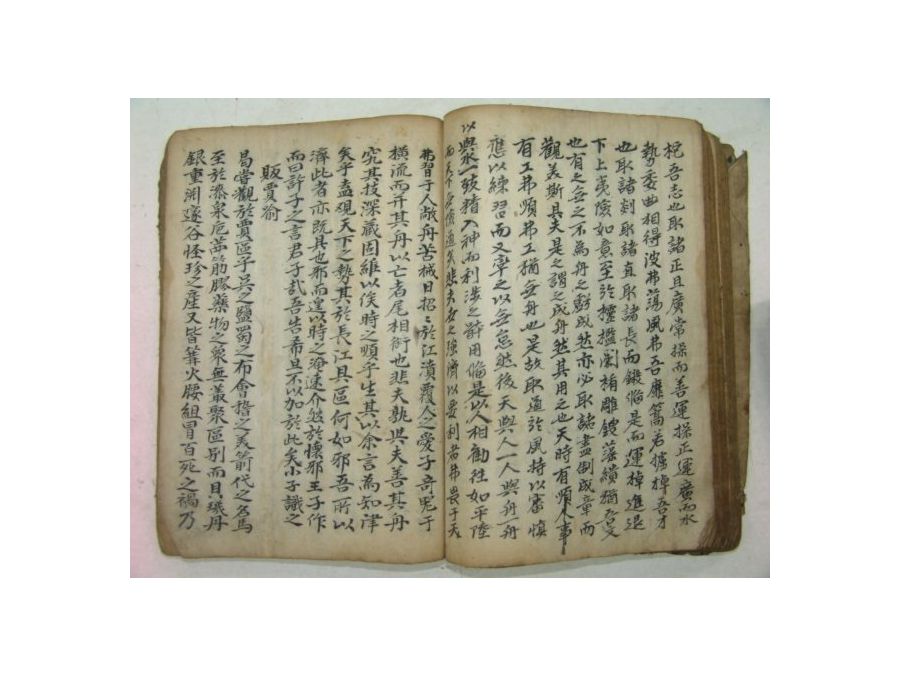 柁吾志也取諸正且廣常操而善運操正運廣而水
勢委曲相得波弗蕩風弗吾靡篙若櫨掉吾才
也取諸剡取諸直取諸長而鍛備是而運掉進退
下上夷險如意至於檻闌楯雕鏤藻繢猶吾文
也有之無之不為舟之虧成然亦必取諸盡制成章而
觀美斯具夫是之謂之成舟然其用之也天時有順人事
有工弗順弗工猶無舟也是故取適於風持以審慎
應以練習而又率之以無怠然後天與人一人與舟一舟
以與水一致精入神而利涉之用備是以人相勸往如平陸
而天下無遺矣悲夫者之強濟以要利者弗畏于天
弗習于人敝舟苦械日招招於江濆覆人之愛子奇貨于
橫流而并其舟以亡者尾相銜也悲夫孰與夫善其舟
究其技深藏固維以俟時之順乎生其以余言為知津
矣乎盍觀天下之勢其於長江具區何如邪吾所以
濟此者亦既具也邪而遑以時之海速介然於懷邪王子作
而曰許子之言君子哉吾告希旦不以加於此矣小子識之
販賈喻
曷嘗觀於賈區乎吳之鹽蜀之布會稽之美箭代之名馬
至於漆枲卮茜筋膠藥物之眾無叢聚區別而貝璣丹
銀重淵邃谷怪珍之產又皆篝火腰組冒百死之禍乃